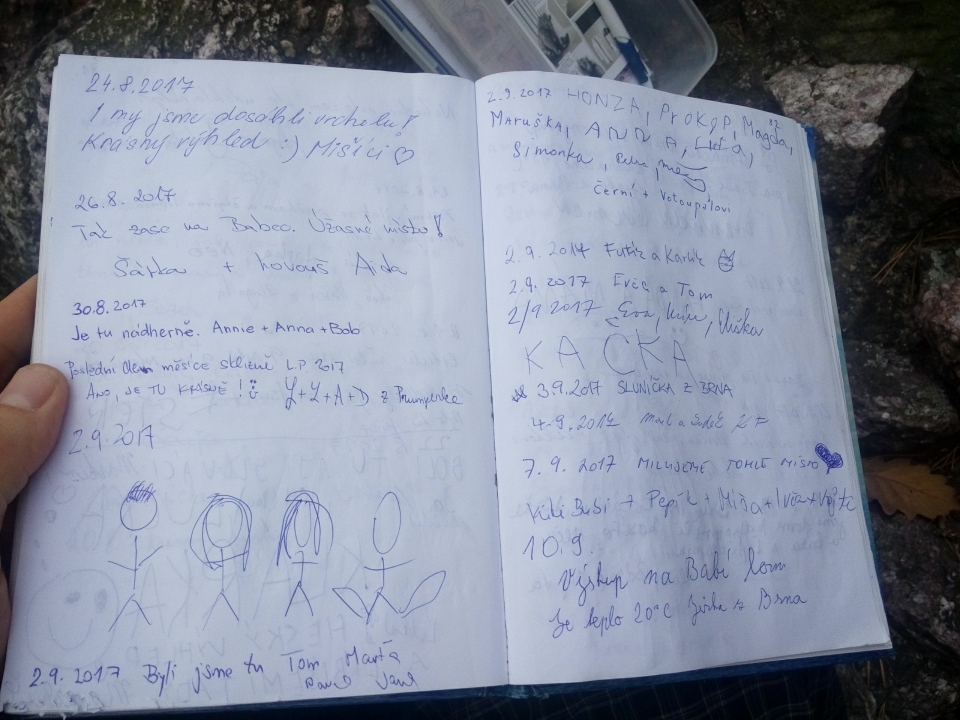 24.8.2017
I my jsme dosáhli vrcholu!
Krásný výhled :) Mišíci ♡
26.8.2017
Tak zase na Babec. Úžasné místo!
Šárka + hovouš Aida
30.8.2017
Je tu nádherně. Annie + Anna + Bob
Poslední den měsíce sklizně L.P. 2017
ANO, JE TU KRÁSNĚ !
L+L+A+D z
2.9.2017
2.9. 2017 Byli jsme tu Tom Marta
Pavel Jana
2.9.2017 HONZA, PROKOP, Magda,
Maruška, ANNA,
Šimonka,
Černí + Votoupalovi
2.9. 2017 a Karlík
2.9. 2017 Evča a Tom
2/9 2017 Eva, Eliška
KAČKA
3.9.2017 SLUNÍČKA Z BRNA
4.9.2017
7.9. 2017 MILUJEME TOHLE MÍSTO
Bubi + Pepík + Míša + Ivča +
10.9.
Výstup na Babí lom
Je teplo 20°C z Brna